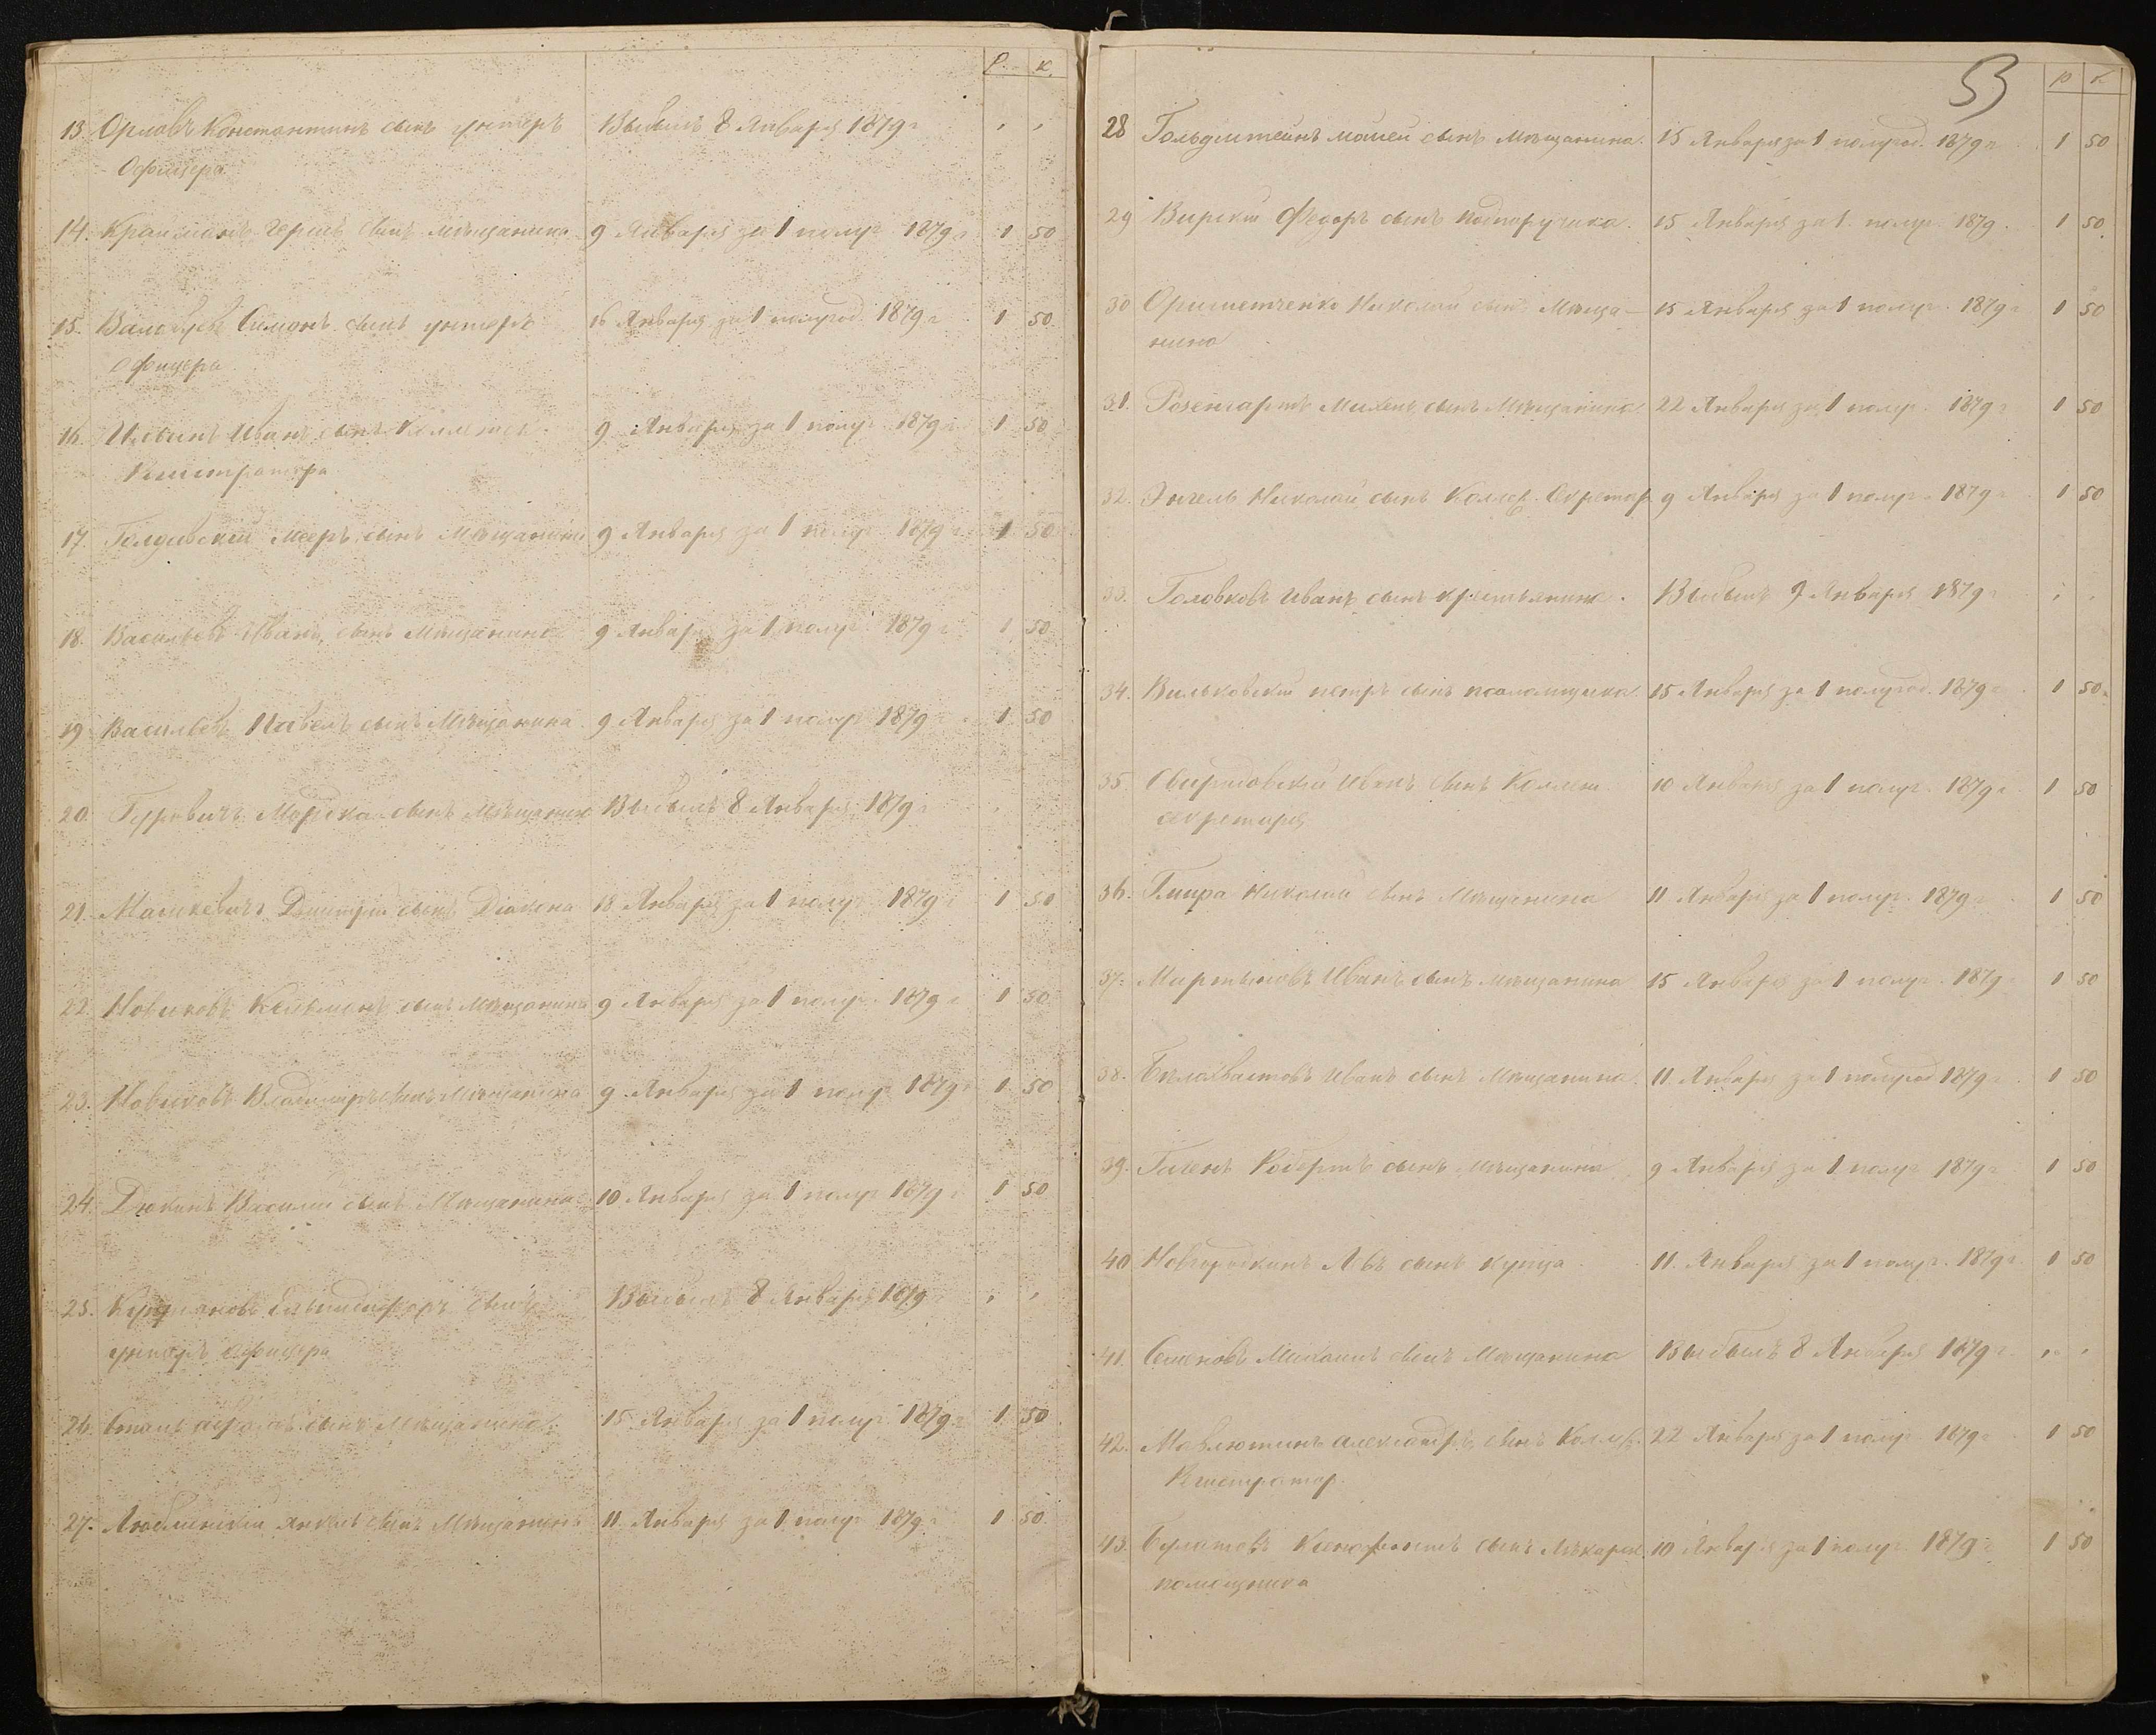 Р. К.
13. Орловъ Константинъ сынъ унтеръ Выбылъ 8 Января 1879 г
Офицера
14. Герцъ сынъ мѣщанина 9 Января за 1 полуг. 1879 г 1 50
15. Симонъ сынъ унтеръ 16 Января за 1 полугод. 1879 г 1 50
Офицера
16. Иванъ сынъ 9 Января за 1 полуг. 1879 г 1 50
Регистратора
17. Мееръ сынъ Мѣщанина 9 Января за 1 полуг 1879 г 1 50
18. Васильевъ Иванъ сынъ Мѣщанина 9 Января за 1 полуг. 1879 г 1 50
19. Васильевъ Павелъ сынъ Мѣщанина 9 Января за 1 полуг 1879 г 1 50
20. Гуревичъ Мордка сынъ Мѣщанина Выбылъ 8 Января 1879 г
21. Машкевичъ Дмитрій сынъ Діакона 18 Января за 1 полуг. 1879 г 1 50
22. Новиковъ сынъ Мѣщанина 9 Января за 1 полуг. 1879 г 1 50
23. Новиковъ Владимиръ сынъ Мѣщанина 9 Января за 1 полуг 1879 г 1 50
24. Дюкинъ Василій сынъ Мѣщанина 10 Января за 1 полуг 1879 г 1 50
25. сынъ Выбылъ 8 Января 1879
унтеръ офицера
26. сынъ Мѣщанина 15 Января за 1 полуг. 1879 г 1 50
27. Янкель сынъ Мѣщанина 11 Января за 1 полуг 1879 г 1 50
53
Р К
28 Гольдштейнъ Мошей сынъ Мѣщанина. 15 Января за 1 полугод. 1879 г 1 50
29 Вирскій Федоръ сынъ подпоручика. 15 Января за 1 полуг. 1879. 1 50
30 Николай сынъ Мѣща- 15 Января за 1 полуг. 1879 г 1 50
нина
31. Розенгартъ сынъ Мѣщанина 22 Января за 1 полуг. 1879 г 1 50
32. Энгель Николай сынъ Коллеж. Секретар 9 Января за 1 полуг. 1879 г 1 50
33. Головковъ Иванъ сынъ крестьянина. Выбылъ 9 Января 1879 г
34. Вильковскій петръ сынъ псаломщика 15 Января за 1 полугод. 1879 г 1 50
35 Свиридовскій Иванъ сынъ Коллеж 10 Января за 1 полуг. 1879 г 1 50
секретаря
36. Николай сынъ Мѣщанина 11 Января за 1 полуг. 1879 г 1 50
37. Мартыновъ Иванъ сынъ мѣщанина 15 Января за 1 полуг. 1879 1 50
38. Бѣлохвастовъ Иванъ сынъ Мѣщанина. 11 Января за 1 полугод 1879 г 1 50
39. Гагенъ Робертъ сынъ мѣщанина 9 Января за 1 полуг 1879 г 1 50
40 Новгородкинъ Левъ сынъ купца 11 Января за 1 полуг. 1879 г 1 50
41. Семеновъ Михаилъ сынъ Мѣщанина Выбылъ 8 Января 1879 г
42. Мавлютинъ Александръ сынъ Коллеж. 22 Января за 1 полуг. 1879 г 1 50
Регистратор.
43. Булатовъ Ксенофонтъ сынъ Лѣкарск. 10 Января за 1 полуг. 1879 г 1 50
помощника